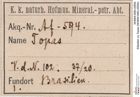 K. k. naturh. Hofmus. Mineral.-petr. Abt.
Akq.-Nr. Af.-594.
Name Topas
V.d.N. 102. 37/20.
Fundort Brasilien.